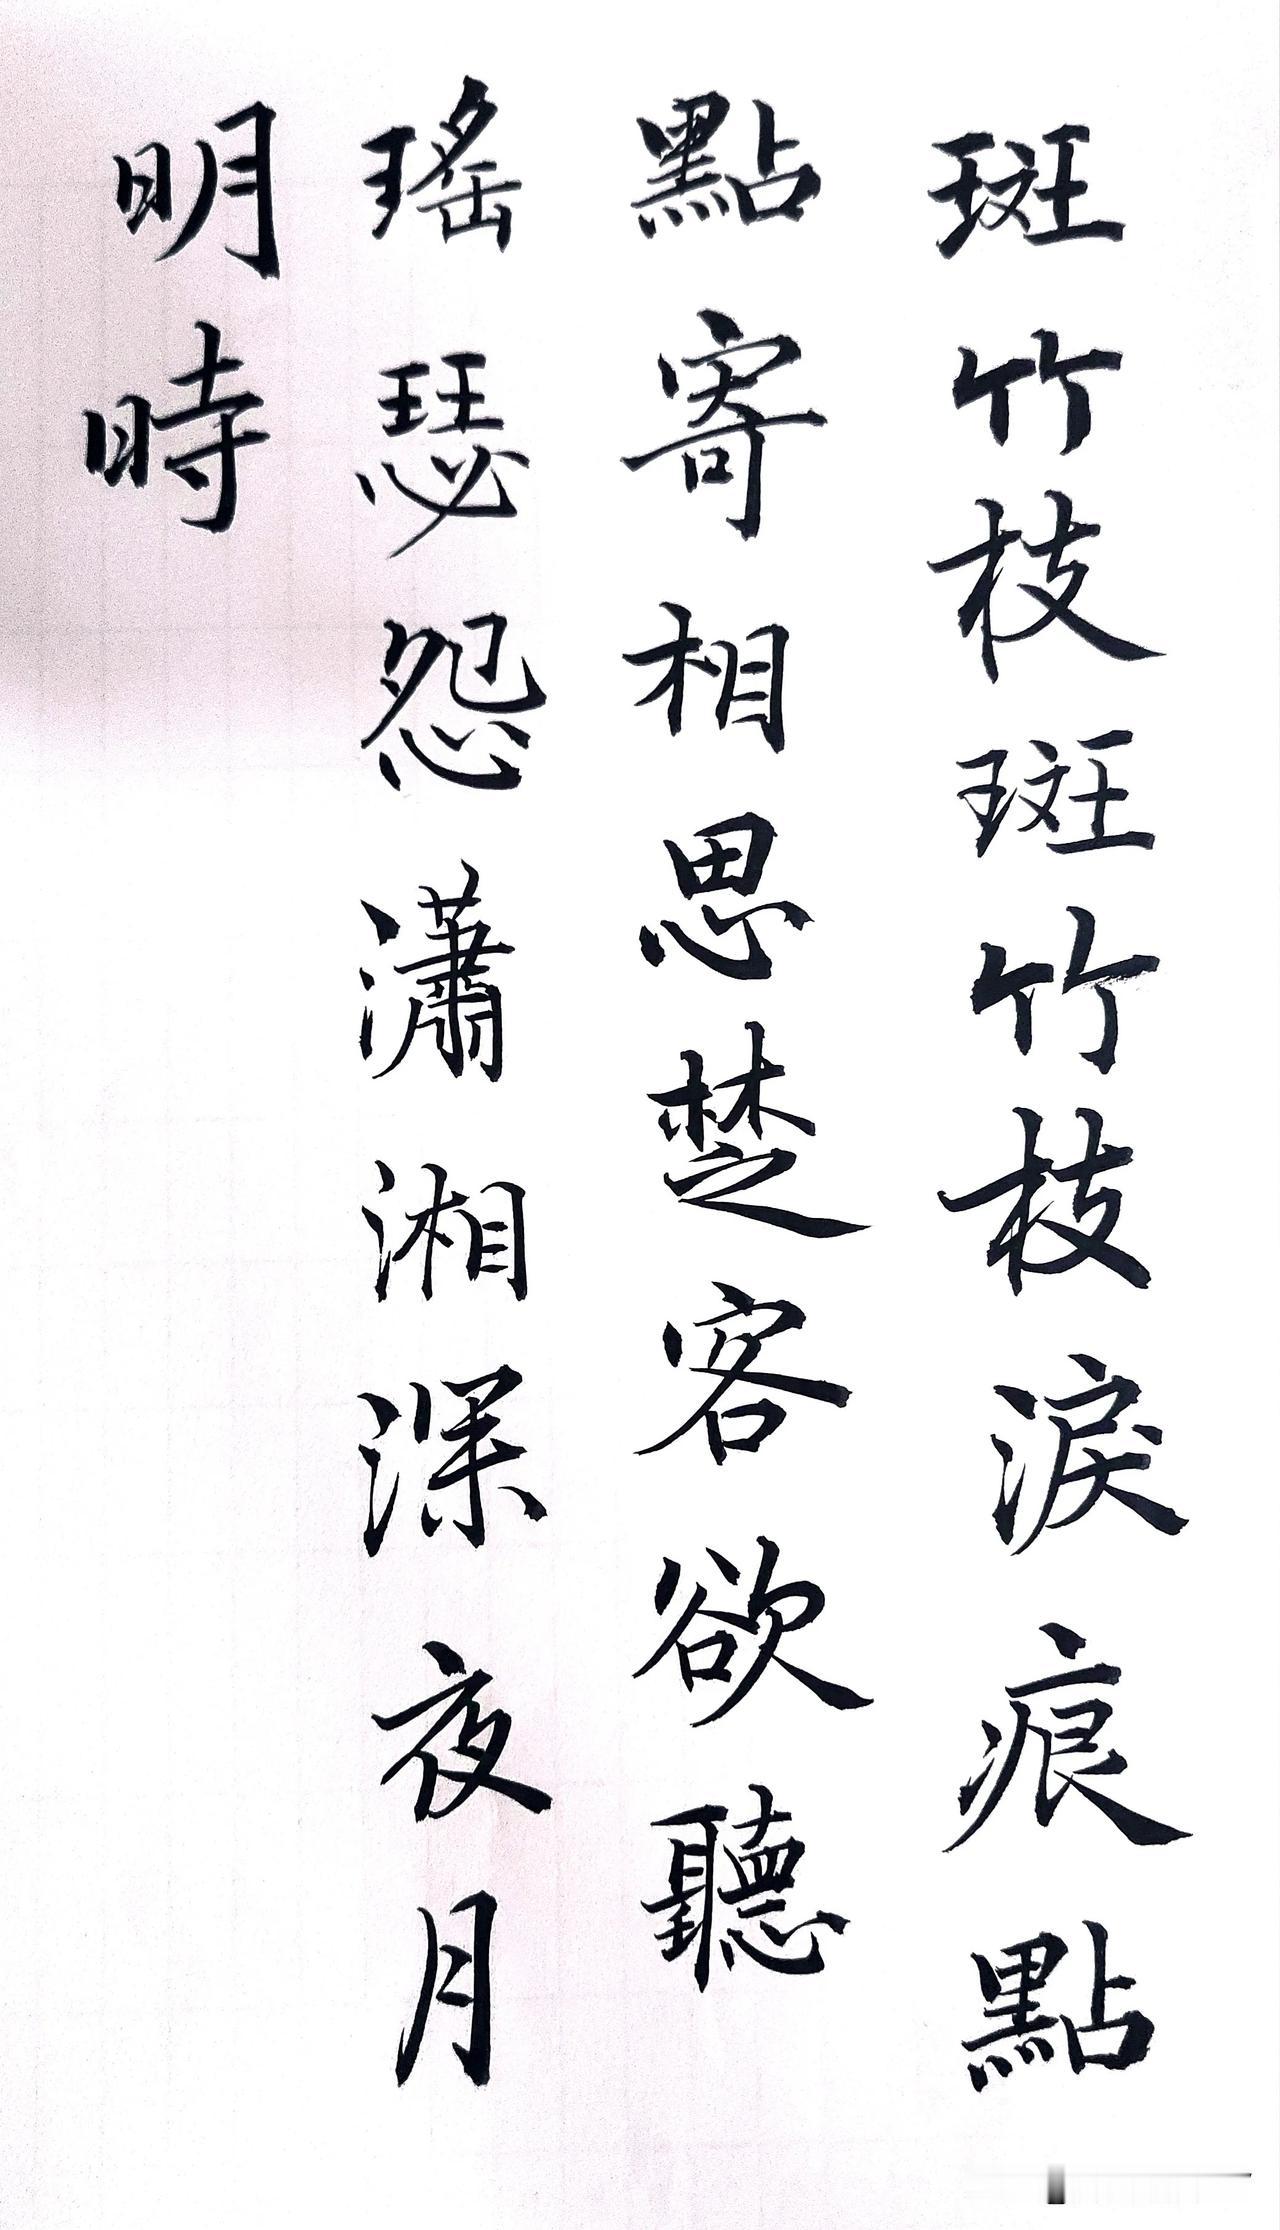 斑竹枝斑竹枝淚痕點
點寄相思楚客欲聽
瑤瑟怨瀟湘深夜月
明時